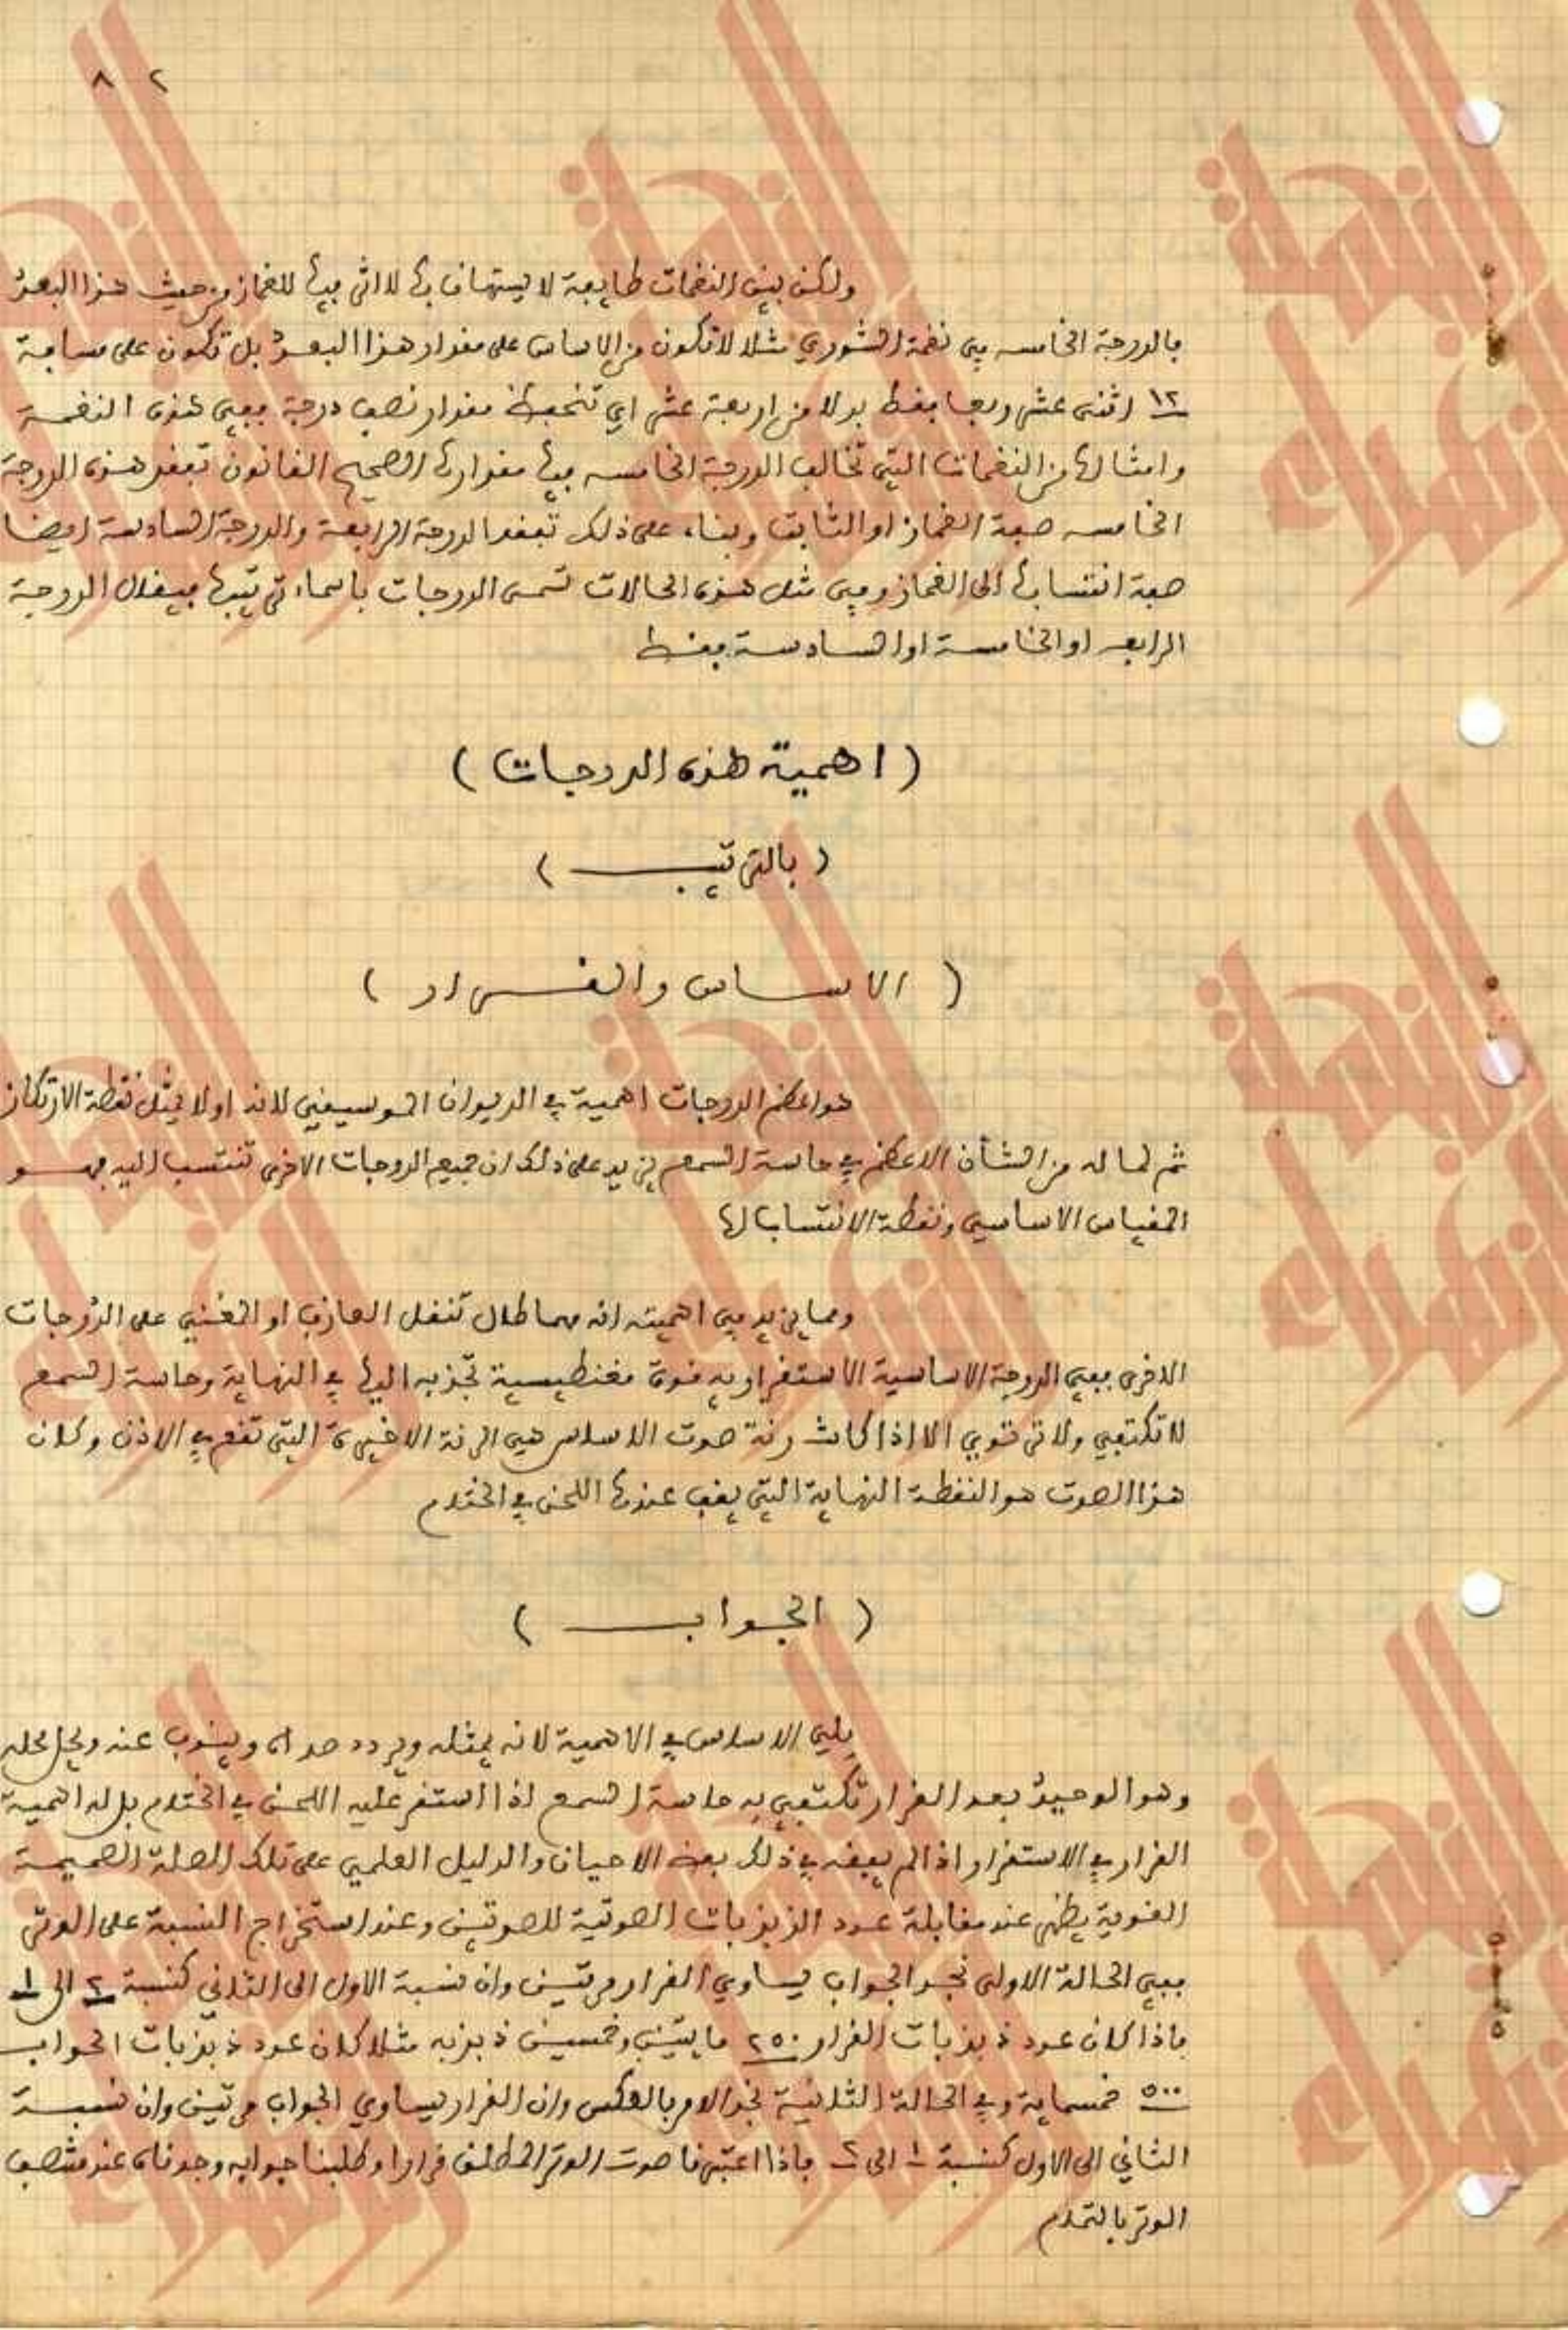 ٢ ٨
ولكن بين النغمات طايفة لا يستهان بها لا اثر فيها للغماز من حيث هذا البعد
فالدرجة الخامسه في نغمة الشوري مثلا لا تكون من الاساس على مقدار هذا البعد بل تكون على مسافة
١٢ اثنى عشر ربعا فقط بدلا من اربعة عشر اي تنحط مقدار نصف درجة ففي هذه النغمة
وامثالها من النغمات التي تخالف الدرجة الخامسه فيها مقدارها الصحيح القانون تفقد هذه الدرجة
الخامسه صفة الغماز او الثابت وبناء على ذلك تفقد الدرجة الرابعة والدرجة السادسة ايضا
صفة انتسابها الى الغماز وفي مثل هذه الحالات تسمى الدرجات باسماء ترتيبها فيقال الدرجة
الرابعه او الخامسة او السادسة فقط
( اهمية هذه الدرجات )
( بالترتيب )
( الاساس والقرار )
هو اعظم الدرجات اهمية في الديوان الموسيقي لانه اولا يمثل نقطة الارتكاز
ثم لما له من الشأن الاعظم في حاسة السمع يزيد على ذلك ان جميع الدرجات الاخرى تنتسب اليه فهو
المقياس الاساسي ونقطة الانتساب لها
ومما يزيد في اهميته انه مهما طال تنقل العازف او المغني على الدرجات
الاخرى ففي الدرجة الاساسية الاستقراريه قوة مغنطيسية تجذبه اليها في النهاية وحاسة السمع
لا تكتفي ولا ترتوي الا اذا كانت رنة صوت الاساس هي الرنة الاخيرة التي تقع في الاذن وكان
هذا الصوت هو النقطة النهاية التي يقف عندها اللحن في الختام
( الجواب )
يلي الاساس في الاهمية لانه يمثله ويردد صداه وينوب عنه ويحل محله
وهو الوحيد بعد القرار تكتفي به حاسة السمع اذا استقر عليه اللحن في الختام بل له اهمية
القرار في الاستقرار اذا لم يفقه في ذلك بعض الاحيان والدليل العلمي على تلك الصلة الصميمة
القوية يظهر عند مقابلة عدد الذبذبات الصوتية للصوتين وعند استخراج النسبة على الوتر
ففي الحالة الاولى نجد الجواب يساوي القرار مرتين وان نسبة الاول الى الثاني كنسبة ٢ الى ١
فاذا كان عدد ذبذبات القرار ٢٥٠ مايتين وخمسين ذبذبه مثلا كان عدد ذبذبات الجواب
٥٠٠ خمسماية وفي الحالة الثانية نجد الامر بالعكس وان القرار يساوي الجواب مرتين وان نسبة
الثاني الى الاول كنسبة ١ الى ٢ فاذا اعتبرنا صوت الوتر المطلق قرارا وطلبنا جوابه وجدناه عند منتصف
الوتر بالتمام